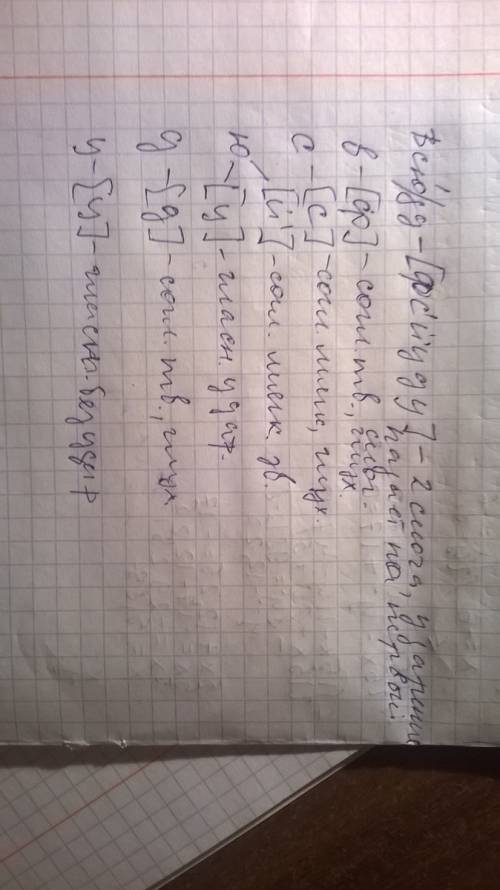 Всю́/ду - [фс'йуду] - 2 слога, ударение
падает на первый
слог.
в - [ф] - согл. тв., глух.
с - [с] - согл. мягк., глух.
[й'] - согл. мягк. зв.
ю - [у] - гласн. удар.
д - [д] - согл. тв., глух
у - [у] - гласн. безудар